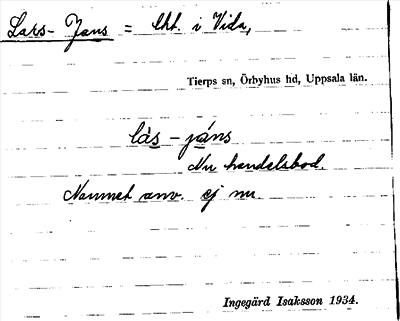 Lars-Jans = lht. i Vida,
Tierps sn, Örbyhus hd, Uppsala län.
lás - jáns
Nu handelsbod.
Namnet anv. ej nu.
Ingegärd Isaksson 1934.